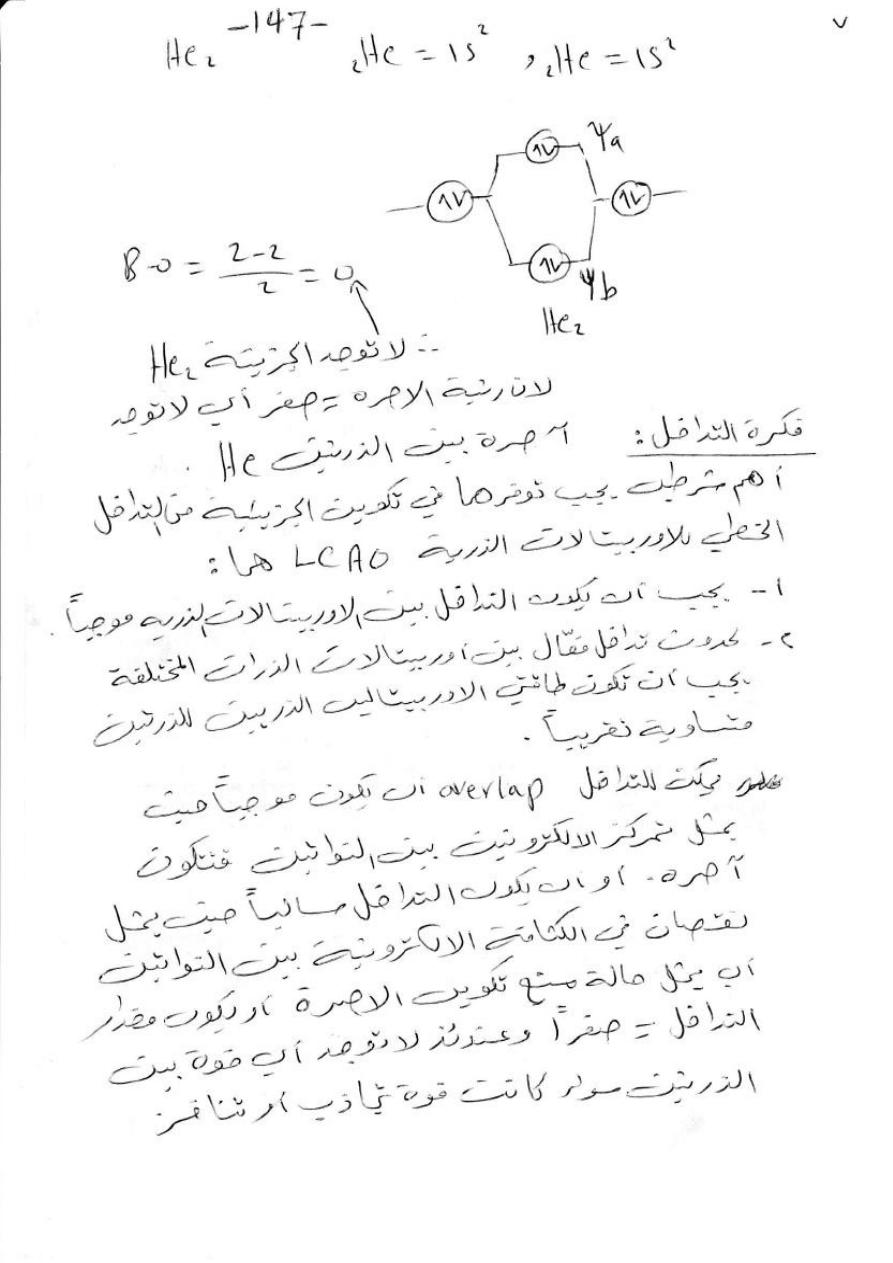 -147-
٧
He₂ ₂He = 1s² , ₂He = 1s²
ψa
B-o = 2-2/2 = 0
ψb
He₂
∴ لا توجد الجزيئة He₂
لان رتبة الاصره = صفر أي لا توجد
آصرة بين الذرتين He .
فكرة التداخل :
أهم شرطين يجب توفرها في تكوين الجزيئية من التداخل
الخطي للاوربيتالات الذرية LCAO هما :
١- يجب ان يكون التداخل بين الاوربيتالات الذريه موجباً .
٢- لحدوث تداخل فعّال بين أوربيتالات الذرات المختلفة
يجب ان تكون طاقتي الاوربيتالين الذريين للذرتين
متساوية تقريباً .
يمكن للتداخل overlap ان يكون موجباً حيث
يمثل تمركز الالكترونين بين النواتين فتتكون
آصره. او ان يكون التداخل سالباً حيث يمثل
نقصان في الكثافة الالكترونية بين النواتين
أي يمثل حالة منع تكوين الاصرة او يكون مقدار
التداخل = صفراً وعندئذ لا توجد أي قوة بين
الذرتين سواء كانت قوة تجاذب او تنافر